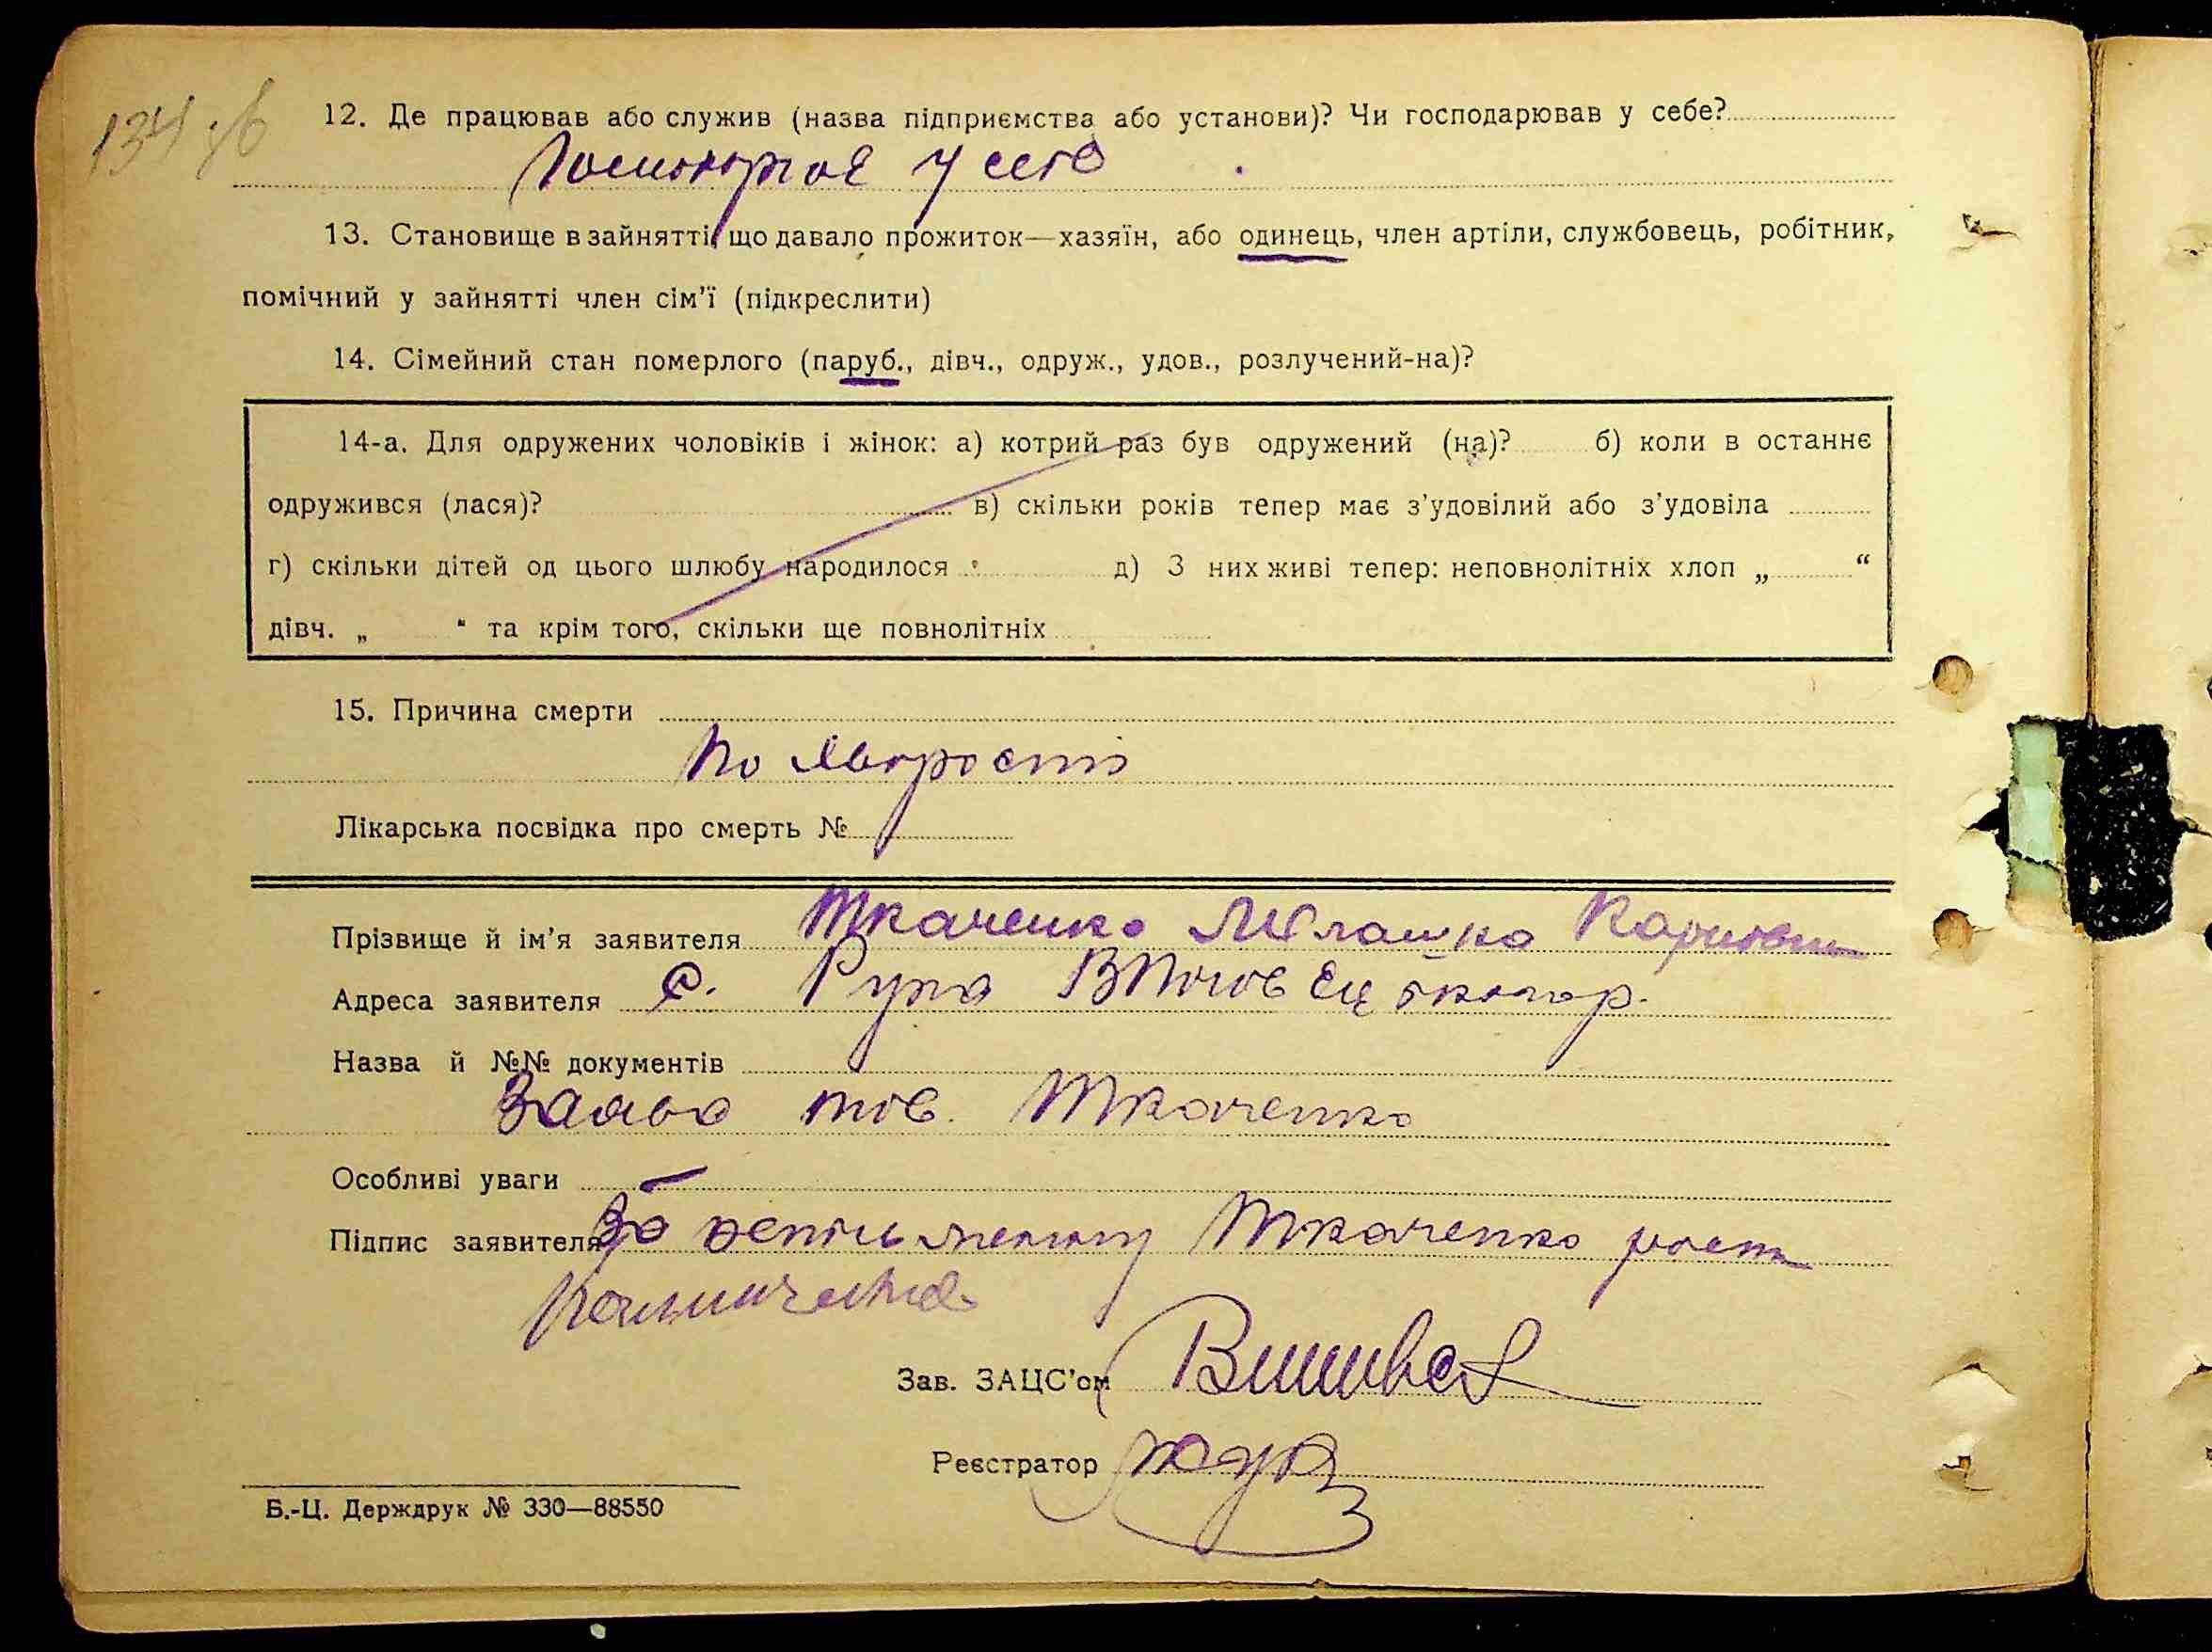 134 зв
12. Де працював або служив (назва підприємства або установи)? Чи господарював у себе?
Господарював у себе
13. Становище в зайнятті, що давало прожиток—хазяїн, або одинець, член артіли, службовець, робітник,
помічний у зайнятті член сім'ї (підкреслити)
14. Сімейний стан померлого (паруб., дівч., одруж., удов., розлучений-на)?
14-а. Для одружених чоловіків і жінок: а) котрий раз був одружений (на)? б) коли в останнє
одружився (лася)? в) скільки років тепер має з'удовілий або з'удовіла
г) скільки дітей од цього шлюбу народилося д) З них живі тепер: неповнолітніх хлоп „ “
дівч. „ “ та крім того, скільки ще повнолітніх
15. Причина смерти
По хворості
Лікарська посвідка про смерть №
Прізвище й ім'я заявителя Ткаченко Мелашка
Адреса заявителя с. Руда
Назва й №№ документів
Заява тов. Ткаченко
Особливі уваги —
Підпис заявителя За Ткаченко
Зав. ЗАЦС'ом
Реєстратор
Б.-Ц. Держдрук № 330—88550